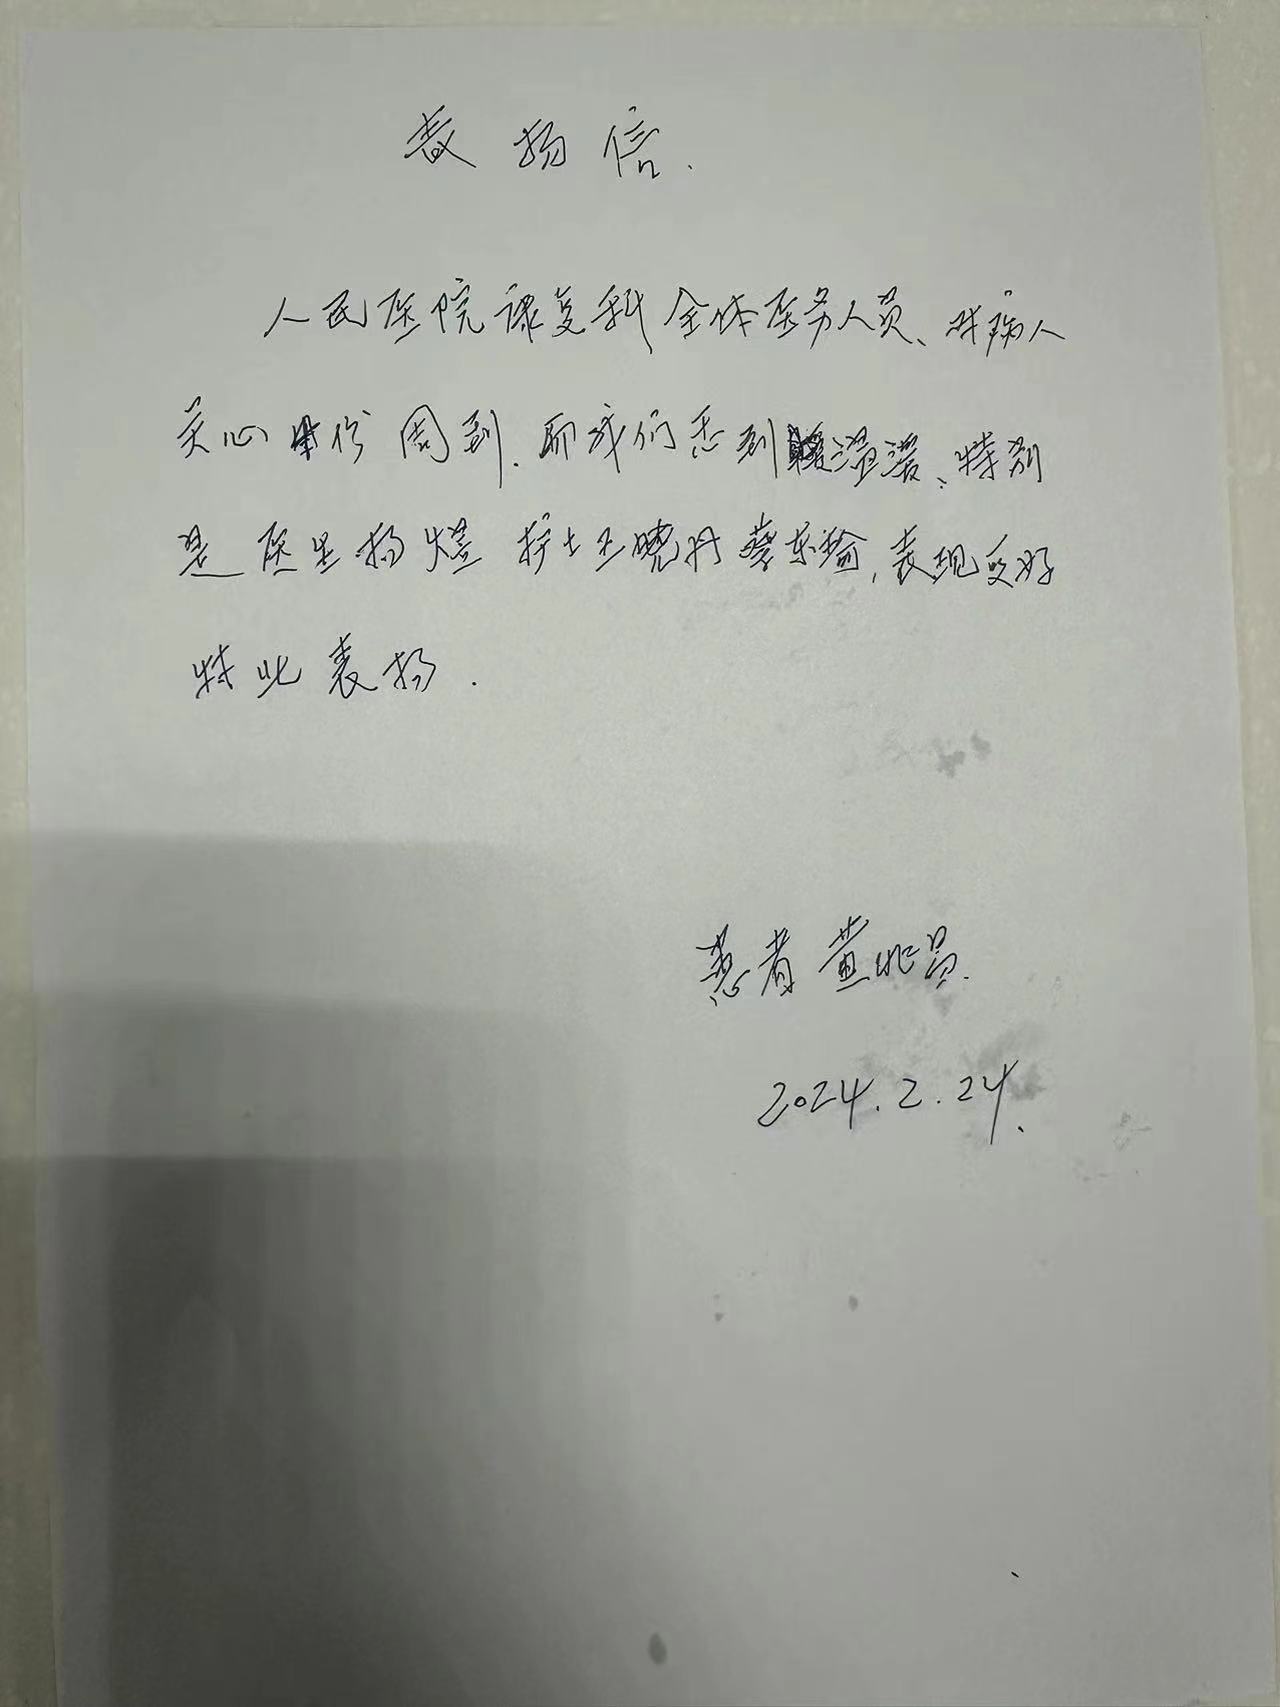 表扬信.
人民医院康复科全体医务人员、对病人
关心 周到.而我们感到温暖、特别
是医生杨煜 护士王晓丹 蔡乐瑜,表现良好
特此表扬.
患者黄兆员.
2024.2.24.